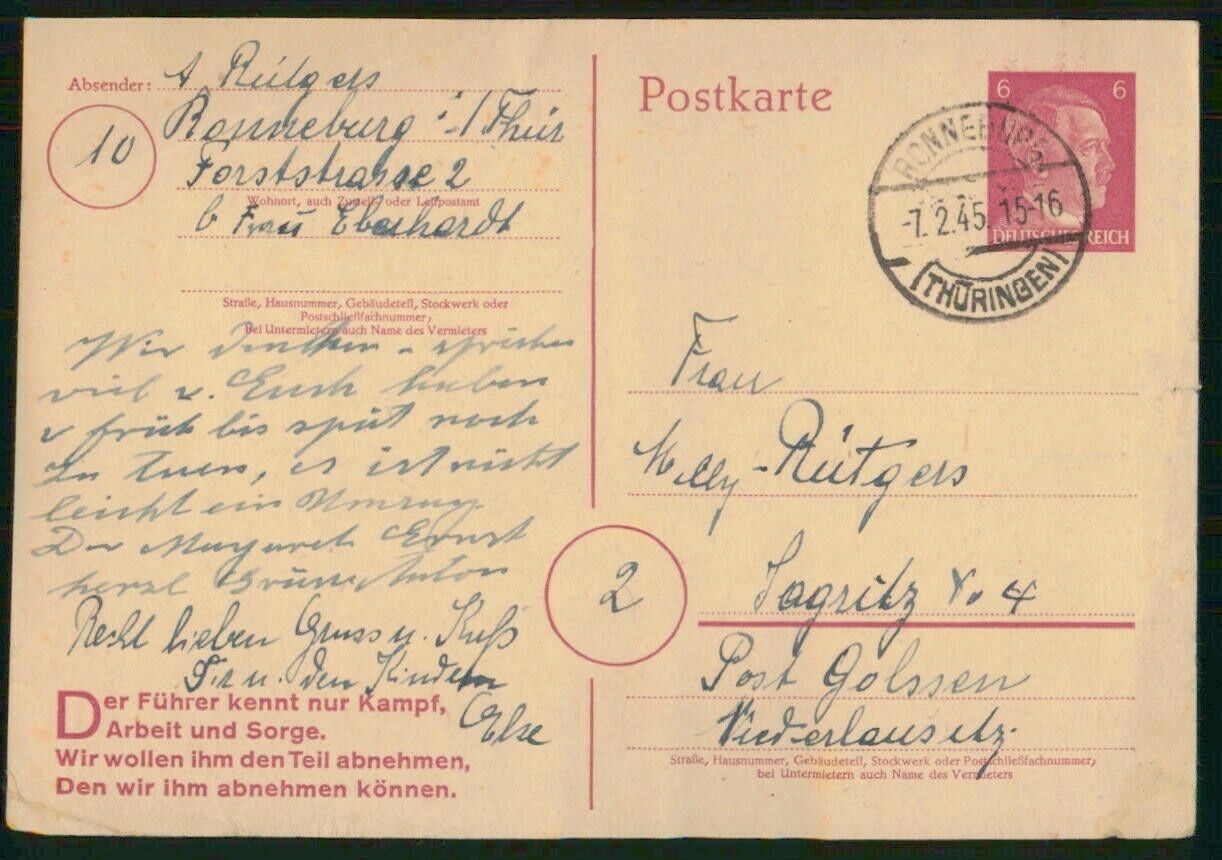 Absender: A Rütgers
10
Ronneburg i/Thür
Forststrasse 2
Wohnort, auch Zustell- oder Leitpostamt
b Frau Eberhardt
Straße, Hausnummer, Gebäudeteil, Stockwerk oder
Postschließfachnummer,
bei Untermietern auch Name des Vermieters
Wir denken u. sprechen
viel v. Euch haben
v früh bis spät noch
zu tuen, es ist nicht
leicht ein Umzug.
Dir Margaret Ernst
herzl Grüsse Anton
Recht lieben Gruss u. Kuß
Dir u. den Kindern
Else
Der Führer kennt nur Kampf,
Arbeit und Sorge.
Wir wollen ihm den Teil abnehmen,
Den wir ihm abnehmen können.
Postkarte
6 6
DEUTSCHES REICH
RONNEBURG
-7.2.45. 15-16
(THÜRINGEN)
Frau
Melly Rütgers
2
Sagritz No 4
Post Golssen
Niederlausitz.
Straße, Hausnummer, Gebäudeteil, Stockwerk oder Postschließfachnummer;
bei Untermietern auch Name des Vermieters